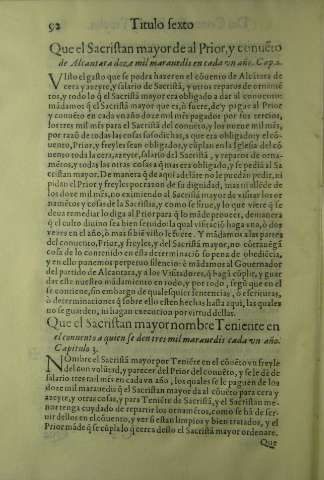 92 Titulo sexto
Que el Sacristan mayor de al Prior, y conuẽto
de Alcantara doze mil marauedis en cada vn año. Cap. 2.
VIsto el gasto que se podra hazer en el cõuento de Alcãtara de
cera y azeyte, y salario de Sacristã, y otros reparos de ornamẽ
tos, y todo lo q̃ el Sacristã mayor era obligado a dar al conuento:
mãdamos q̃ el Sacristã mayor que es, o fuere, de y pague al Prior
y conuento en cada vn año doze mil mrs pagados por sus tercios,
los tres mil mrs para el Sacristã del conuẽto, y los nueue mil mrs,
por razõ de todas las cosas susodichas, a que era obligado y el cõ-
uento, Prior, y freyles sean obligados, y cũplan en la Iglesia del cõ
uento toda la cera, azeyte, salario del Sacristã, y reparos de orna-
mẽtos, y todas las otras cosas a q̃ mas era obligado, y se pedia al Sa
cristan mayor. De manera q̃ de aqui adelãte no le puedan pedir, ni
pidan el Prior y freyles por razon de su dignidad, mas ni allẽde de
los doze mil mrs, no eximiendo al Sacristã mayor de visitar los or
namẽtos y cosas de la Sacristia, y como se sirue, y lo que viere q̃ se
deua remediar lo diga al Prior para q̃ lo mãde proueer, de manera
q̃ el culto diuino sea bien seruido: la qual visitaciõ haga vna, o dos
vezes en el año, o mas si biẽ visto le fuere. Y mãdamos a las partes
del conuento, Prior, y freyles, y del Sacristã mayor, no cõtrauẽgã
cosa de lo contenido en esta determinaciõ so pena de obediẽcia,
y en ello ponemos perpetuo silencio: o mãdamos al Gouernador
del partido de Alcantara, y a los Visitadores, q̃ hagã cũplir, y guar
dar este nuestro mãdamiento en todo, y por todo, segũ que en el
se contiene, sin embargo de qualesquier sentencias, o escrituras,
o determinaciones q̃ sobre ello estẽ hechas hasta aqui, las quales
no se guarden, ni hagan execucion por virtud dellas.
Que el Sacristan mayor nombre Teniente en
el conuento a quien se den tres mil marauedis cada vn año.
Capitulo 3.
NOmbre el Sacristã mayor por Teniẽte en el cõuẽto vn freyle
del con volũtad, y parecer del Prior del conuẽto, y se le dẽ de
salario tres mil mrs en cada vn año, los quales se le paguen de los
doze mil marauedis q̃ el Sacristan mayor da al cõuẽto para cera y
azeyte, y otras cosas, y para Teniẽte de Sacristã, y el Sacristan me-
nor tenga cuydado de repartir los ornamẽtos, como se hã de ser-
uir dellos en el cõuento, y ver si estan limpios y bien tratados, y el
Prior mãde q̃ se cũpla lo q̃ cerca desto el Sacristã mayor ordenare.
Que